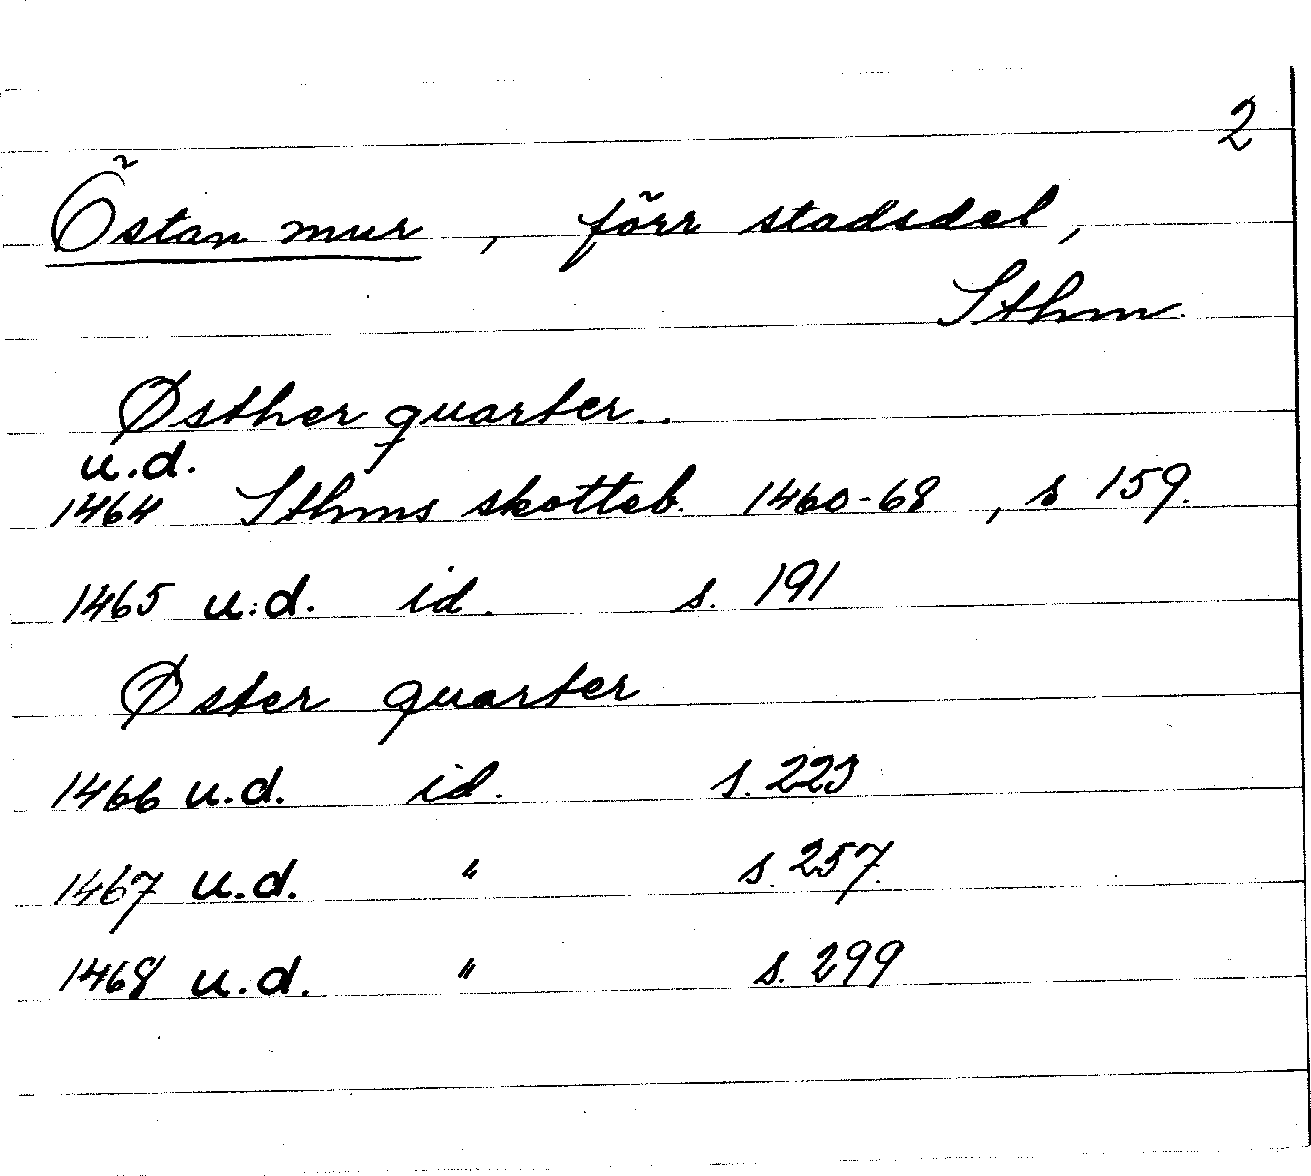 2
Östan mur, förr stadsdel,
Sthm.
Østher quarter.
u.d.
1464 Sthms skotteb. 1460-68, s 159.
1465 u.d. id. s. 191
Øster quarter
1466 u.d. id. s. 223
1467 u.d. " s. 257.
1468 u.d. " s. 299